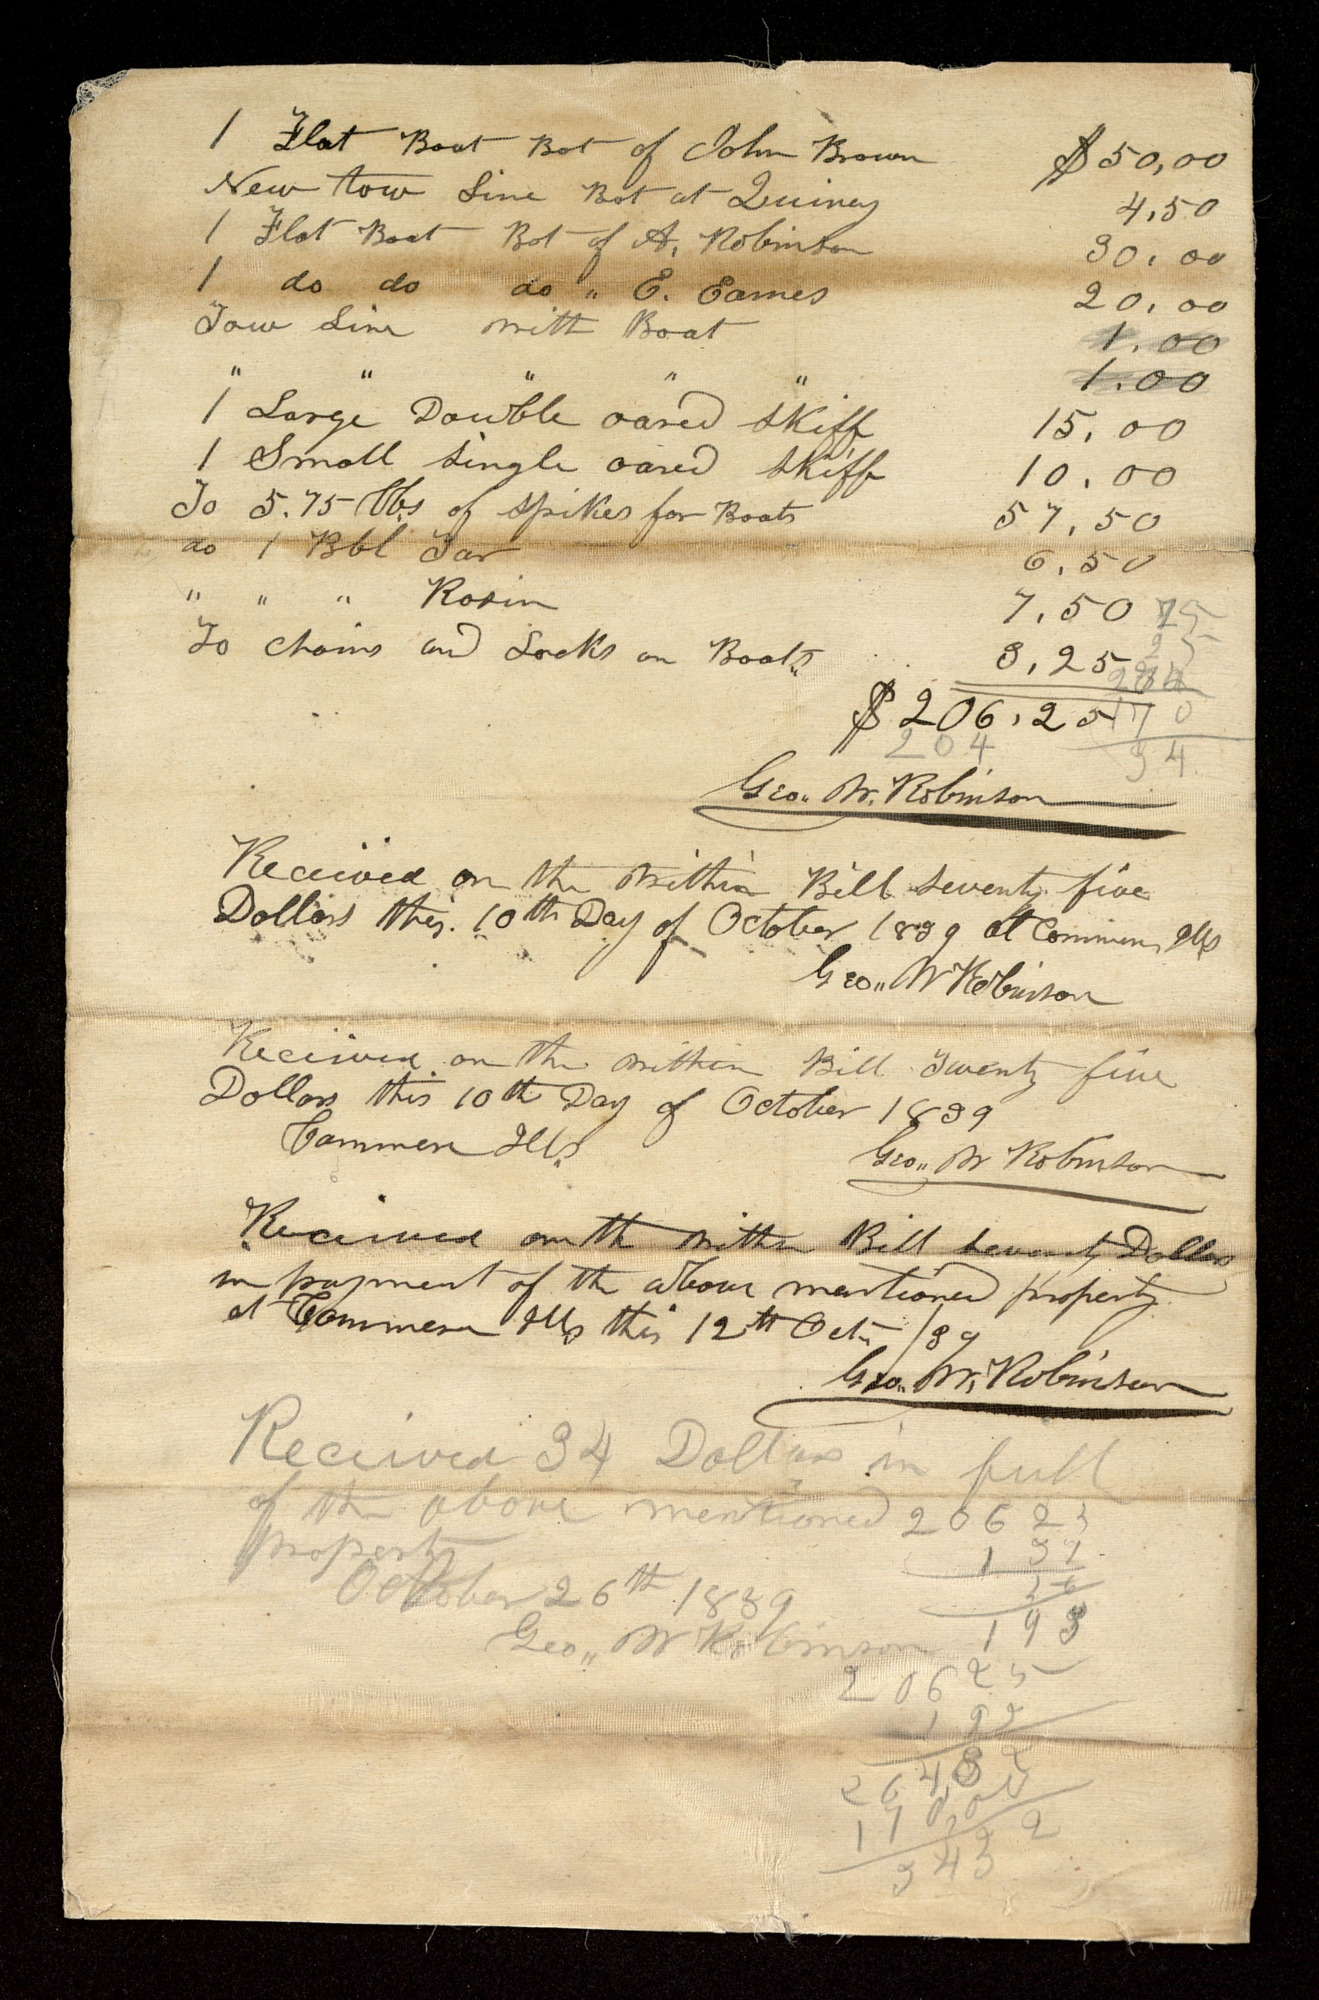 1 Flat Boat Bot of John Brown $50,00
New tow Line Bot at Quincy 4,50
1 Flat Boat Bot of A. Robinson 30,00
1 do do do " E. Eames 20,00
Tow Line with Boat 1.00
" " " " " 1.00
1 Large Double oared skiff 15,00
1 Small single oared skiff 10,00
To 5.75 lbs of spikes for Boats 57,50
do 1 Bbl Tar 6,50
" " " Rosin 7,50 25
To chains and Locks on Boats 3,25
$206,25 170
204 34
Geo,, W. Robinson
Received on the within Bill seventy five
Dollars this 10th Day of October 1839 at Commerce Ills
Geo,, W Robinson
Received on the within Bill Twenty five
Dollars this 10th Day of October 1839
Commerce Ills
Geo,, W Robinson
Received on th within Bill seventy Dollars
in payment of the above mentioned property
at Commerce Ills this 12th Oct /39
Geo,, W. Robinson
Received 34 Dollars in full
of the above mentioned
property
October 26th 1839
Geo,, W Robinson 193
20625